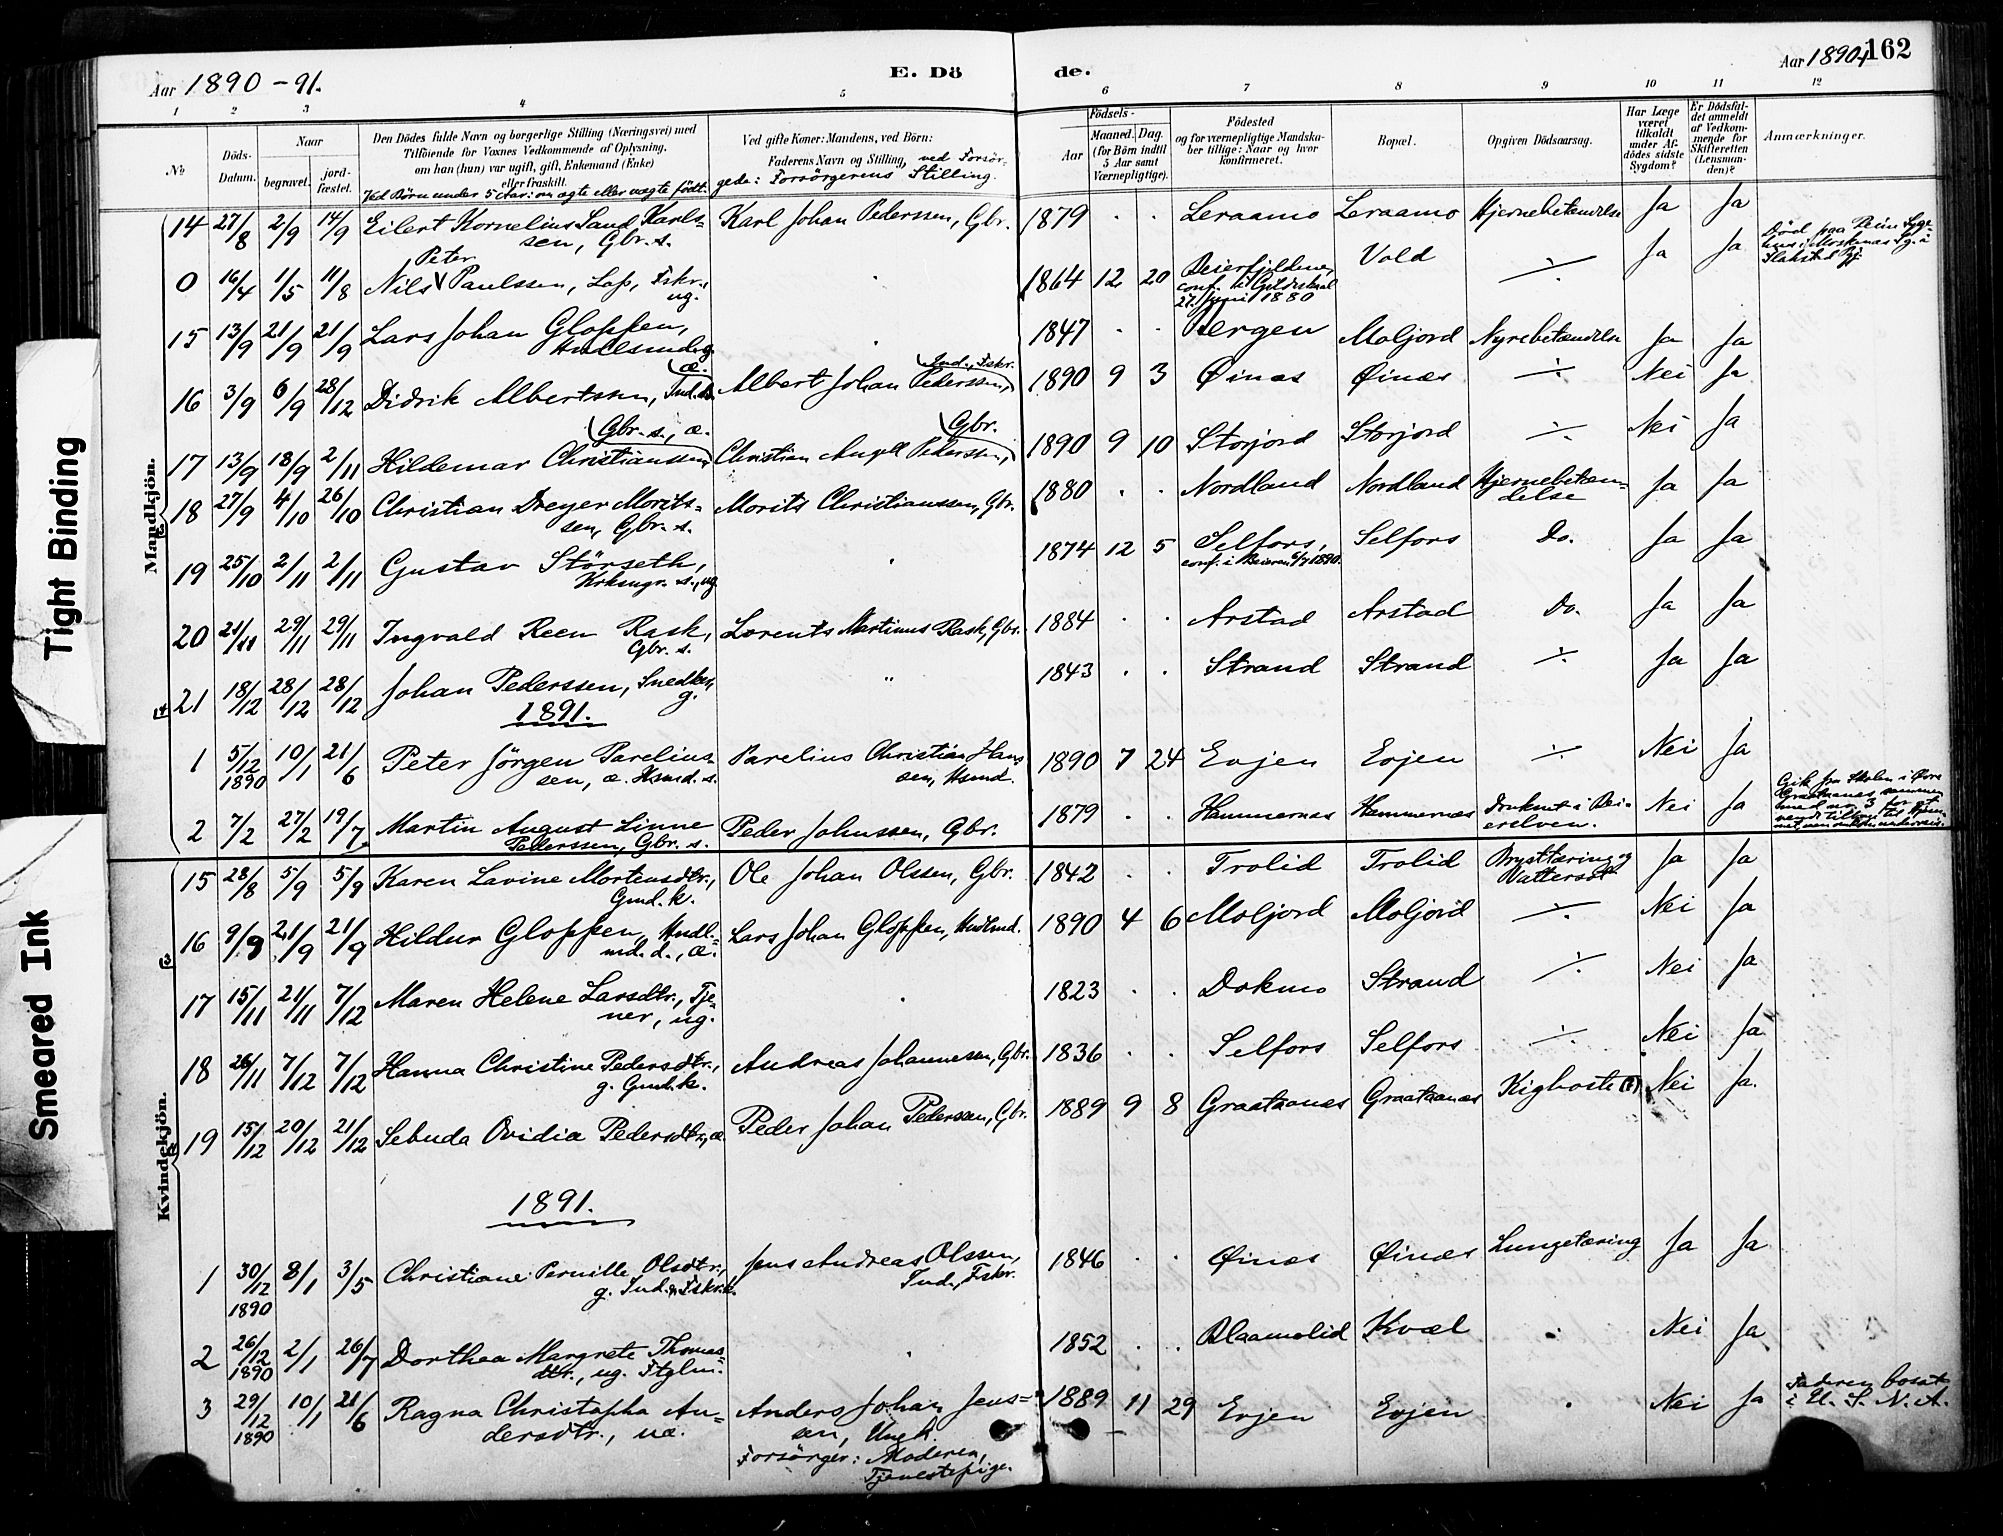 Aar 1890-91.
E. Döde.
Aar 1890-1
162
1 2 3 4 5 6 7 8 9 10 11 12
No
Döds-Datum.
Naar
begravet.
jordfæstet.
Den Dödes fulde Navn og borgerlige Stilling (Næringsvei) med
Tilföiende for Voxnes Vedkommende af Oplysning,
om han (hun) var ugift, gift, Enkemand (Enke)
eller fraskilt.
Ved Börn under 5 Aar: om ægte eller uægte födt.
Ved gifte Koner: Mandens, ved Börn:
Faderens Navn og Stilling, ved Forsör-
gede: Forsörgerens Stilling.
Födsels-
Aar
Maaned. Dag.
(for Börn indtil
5 Aar samt
Værnepligtige).
Födested
og for værnepligtige Mandska-
ber tillige: Naar og hvor
konfirmeret.
Bopæl.
Opgiven Dödsaarsag.
Har Læge
været
tilkaldt
under Af-
dödes sidste
Sygdom?
Er Dödsfal-
det anmeldt
af Vedkom-
mende for
Skifteretten
(Lensman-
den)?
Anmærkninger.
Mandkjön.
14 27/8 2/9 14/9 Eilert Kornelius Sand Karls-
sen, Gbr. s. Karl Johan Pederssen, Gbr. 1879 . . Leraamo Leraamo Hjernebetændelse Ja Ja
0 16/4 1/5 11/8 Nils Peter Paulssen, Lap, Fskr.,
ug. 1864 12 20 Beierfjeldene,
conf. i Gildeskaal
27. Juni 1880 Vold ./. Ja Ja Död paa Reine Syge-
hus i Moskenæs Sg. i
Flakstad Pgj.
15 13/9 21/9 21/9 Lars Johan Gloppen,
Husmd. g. 1847 . . Bergen Moljord Nyrebetændelse Ja Ja
16 3/9 6/9 28/12 Didrik Albertssen, Ind. s. æ. Albert Johan Pederssen, Ind., Fskr. 1890 9 3 Øinæs Øinæs ./. Nei Ja
17 13/9 18/9 2/11 Hildemar Christianssen, Gbr. s., æ. Christian Angell Pederssen, Gbr. 1890 9 10 Storjord Storjord ./. Nei Ja
18 27/9 4/10 26/10 Christian Dreyer Morits-
sen, Gbr. s. Morits Christianssen, Gbr. 1880 . . Nordland Nordland Hjernebetæn-
delse Ja Ja
19 25/10 2/11 2/11 Gustav Störseth,
Krksngr. s., ug. 1874 12 5 Selfors,
conf. i Beieren 6/7 1890. Selfors Do. Ja Ja
20 21/11 29/11 29/11 Ingvald Reen Rask,
Gbr. s. Lorents Martinus Rask, Gbr. 1884 . . Arstad Arstad Do. Ja Ja
21 18/12 28/12 28/12 Johan Pederssen, Snedker,
g. " 1843 . . Strand Strand ./. Ja Ja
1891.
1 5/12 1890 10/1 21/6 Peter Jörgen Parelius-
sen, æ. Hsmd. s. Parelius Christian Hans-
sen, Hsmd. 1890 7 24 Evjen Evjen ./. Nei Ja
2 7/2 27/2 19/7 Martin August Linne
Pederssen, Gbr. s. Peder Johnssen, Gbr. 1879 . . Hammernæs Hammernæs Druknet i Bei-
erelven. Nei Ja Gik fra Skolen i Øvre
Graatnanæs sammen
med
Kvindekjön.
15 28/8 5/9 5/9 Karen Lavine Mortensdtr.,
Gmd. k. Ole Johan Olssen, Gbr. 1842 . . Trolid Trolid Brysttæring og
Vattersot Ja Ja
16 9/9 21/9 21/9 Hildur Gloppen, Husl.-
md. d., æ. Lars Johan Gloppen, Huslmd. 1890 4 6 Moljord Moljord ./. Nei Ja
17 15/11 21/11 7/12 Maren Helene Larsdtr., Tje-
ner, ug. 1823 . . Dokmo Strand ./. Nei Ja
18 26/11 7/12 7/12 Hanna Christine Pedersdtr.,
g. Gmd. k. Andreas Johannesen, Gbr. 1836 . . Selfors Selfors ./. Nei Ja
19 15/12 20/12 21/12 Sebuda Ovidia Pedersdtr., æ. Peder Johan Pederssen, Gbr. 1889 9 8 Graataanæs Graataanæs Kighoste (?) Nei Ja.
1891.
1 30/12 1890 8/1 3/5 Christiane Pernille Olsdtr.,
g. Ind. & Fskr. k. Jens Andreas Olssen,
Ind., Fskr. 1846 . . Øinæs Øinæs Lungetæring Ja Ja
2 26/12 1890 2/1 26/7 Dorthea Margrete Thomas-
dtr., ug. Ftglm. 1852 . . Blaamolid Kvæl . Nei Ja
3 29/12 1890 10/1 21/6 Ragna Christopha An-
dersdtr., uæ. Anders Johan Jens-
sen, Ungk.
Forsörger: Moderen,
Tjenestepige. 1889 11 29 Evjen Evjen . Nei Ja Faderen bosat
i U. S. N. A.
Tight Binding
Smeared Ink